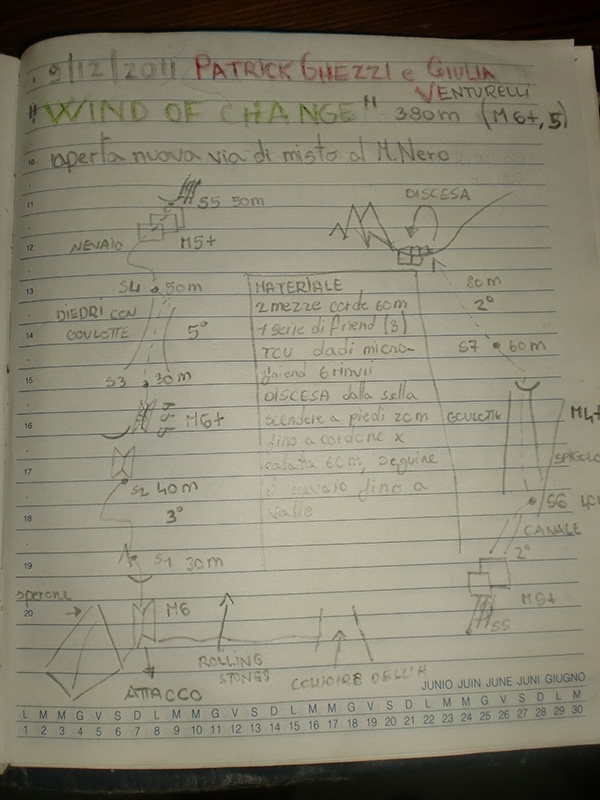 9/12/2011 PATRICK GHEZZI e GIULIA
VENTURELLI
"WIND OF CHANGE" 380m (M6+,5)
aperta nuova via di misto al M.Nero
10
11
12
13
14
15
16
17
18
19
20
S5 50m
NEVAIO
M5+
S4 50m
DIEDRI CON
GOULOTTE
5°
S3 30m
M6+
S2 40m
3°
S1 30m
sperone
M6
ATTACCO
ROLLING
STONES
COULOIRE DELL'H
MATERIALE
2 mezze corde 60m
1 serie di friend (3)
TCU dadi micro-
friend 6 rinvii
DISCESA dalla sella
scendere a piedi 20m
fino a cordone x
calata 60m, seguire
il nevaio fino a
valle
DISCESA
80m
2°
S7 60m
GOULOTTE
M4+
SPIGOLO
S6
CANALE
2°
M5+
S5
JUNIO JUIN JUNE JUNI GIUGNO
L M M G V S D L M M G V S D L M M G V S D L M M G V S D L M
1 2 3 4 5 6 7 8 9 10 11 12 13 14 15 16 17 18 19 20 21 22 23 24 25 26 27 28 29 30